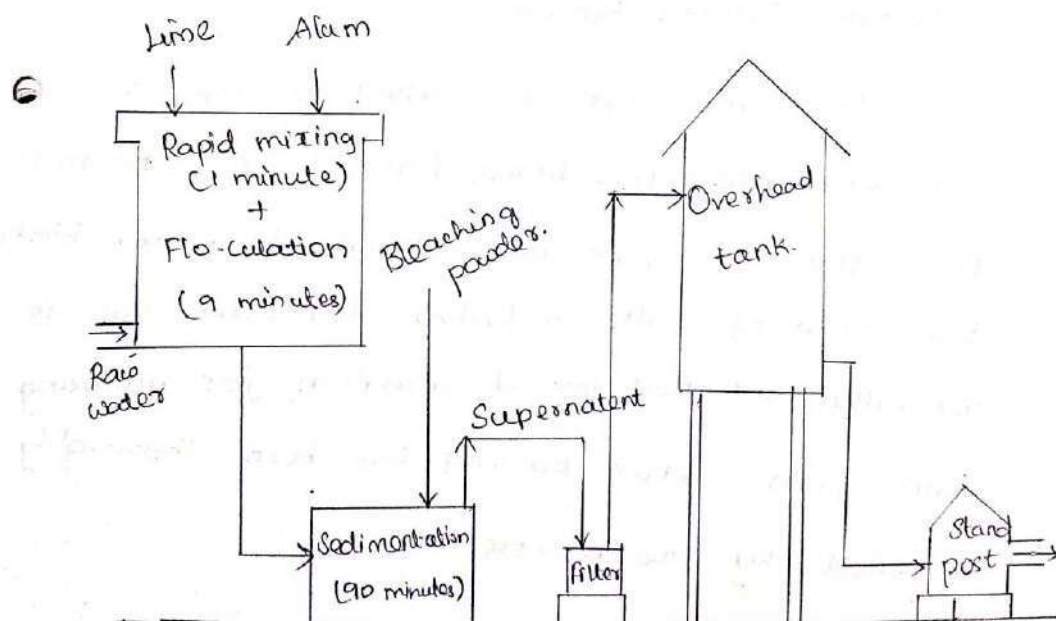 Lime
Alam
Rapid mixing
(1 minute)
+
Flo-culation
(9 minutes)
Raw
water
Bleaching
powder.
Supernatent
Sedimentation
(90 minutes)
filter
Overhead
tank.
Stand
post